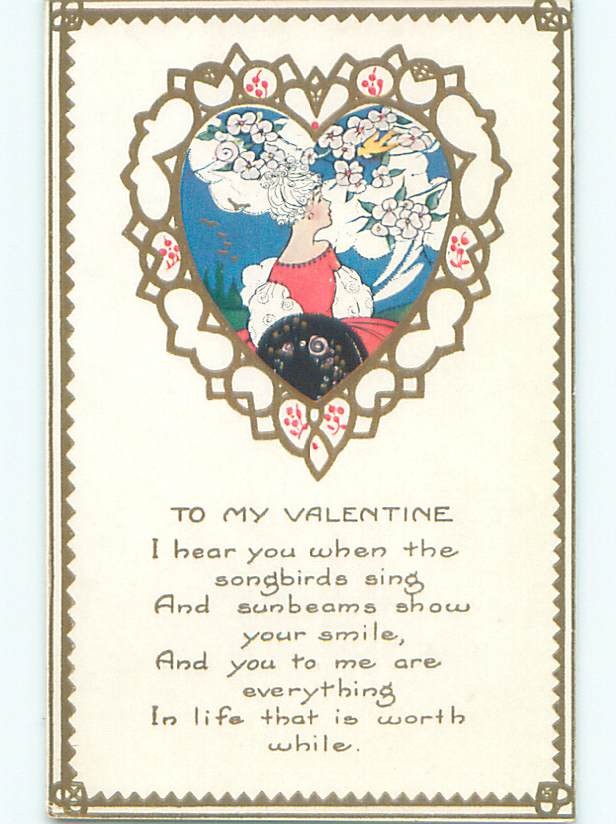 TO MY VALENTINE
I hear you when the
songbirds sing
And sunbeams show
your smile,
And you to me are
everything
In life that is worth
while.